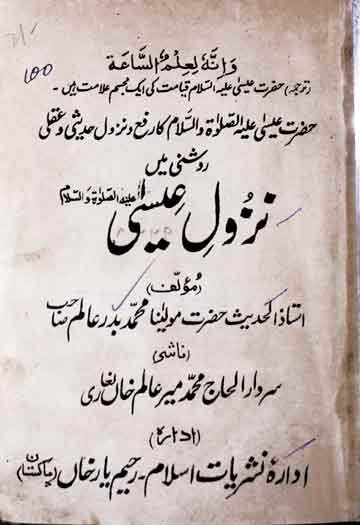 100
وَاِنَّهٗ لَعِلْمٌ لِّلسَّاعَۃِ
(ترجمہ) حضرت عیسیٰ علیہ السلام قیامت کی ایک مجسم علامت ہیں۔
حضرت عیسیٰ علیہ الصلوٰۃ والسلام کا رفع و نزول حدیثی و عقلی
روشنی میں
نزولِ عیسیٰ علیہ الصلوٰۃ والسلام
(مؤلف)
استاذ الحدیث حضرت مولینا محمد بدر عالم صاحب
(ناشر)
سردار الحاج محمد میر عالم خاں لغاری
(ادارہ)
ادارۂ نشریات اسلام۔ رحیم یار خاں (پاکستان)